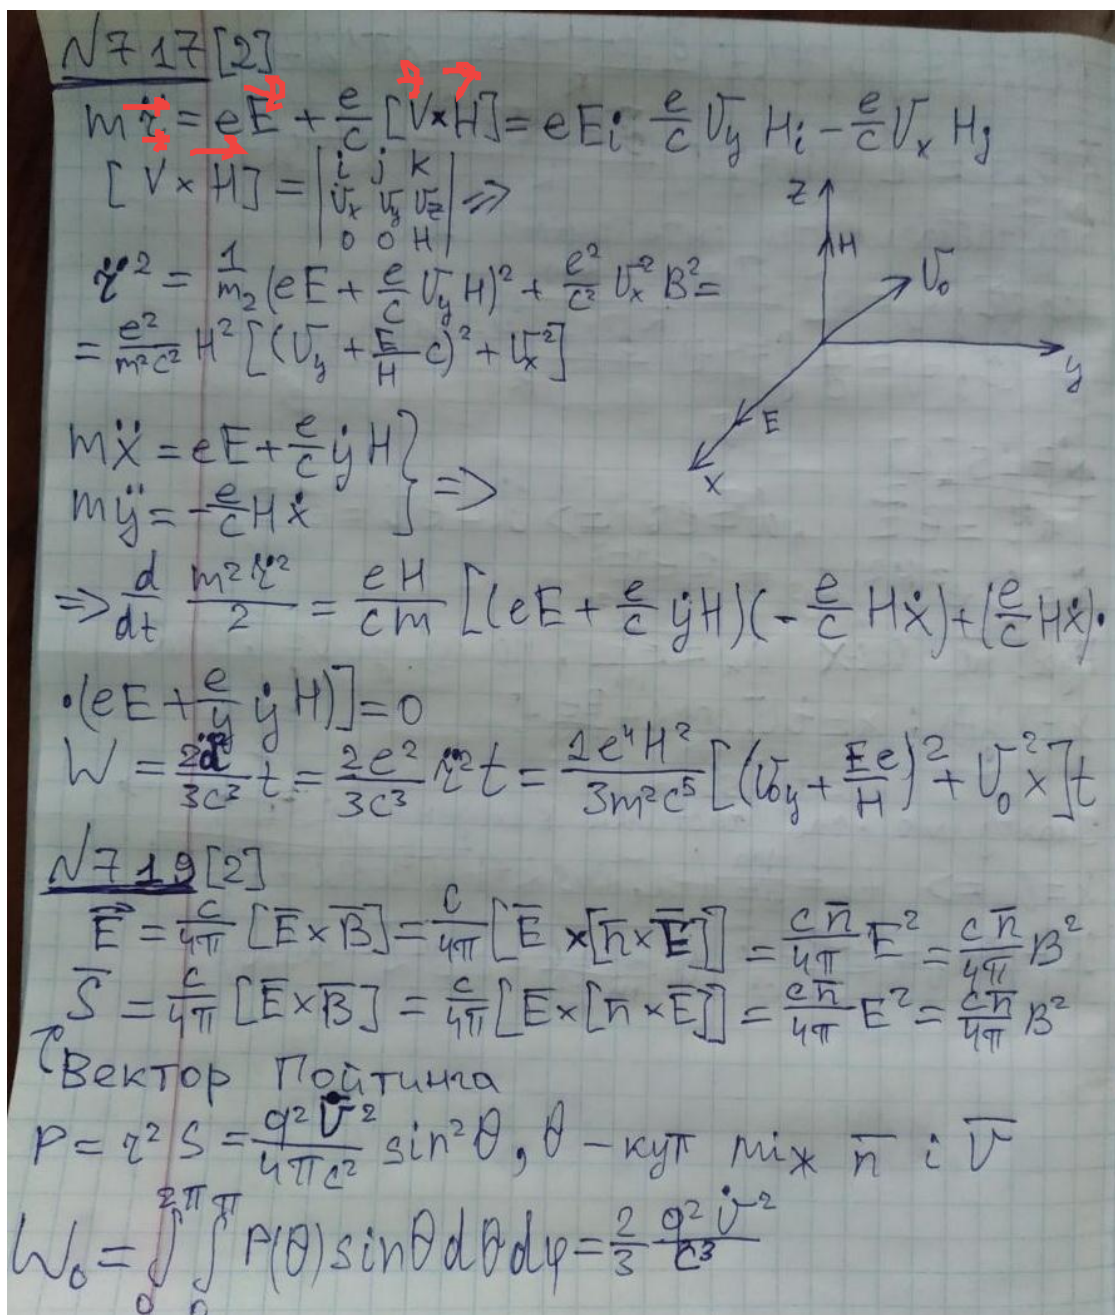 N717[2]
m r̈ = eE + e/c [V×H] = eEi e/c Vy Hi - e/c Vx Hj
[V×H] = | i j k / Vx Vy Vz / 0 0 H | =>
r̈² = 1/m2 (eE + e/c Vy H)² + e²/c² Vx² B² =
= e²/m²c² H² [(Vy + E/H c)² + Vx²]
z H V0 y E x
mẍ = eE + e/c ẏH
mÿ = -e/c Hẋ } =>
=> d/dt m²r̈²/2 = eH/cm [(eE + e/c ẏH)(-e/c Hẋ) + (e/c Hẋ)·
·(eE + e/y ẏH)] = 0
W = 2d̈²/3c³ t = 2e²/3c³ r̈² t = 2e⁴H²/3m²c⁵ [(V0y + Ee/H)² + V0²x] t
N719[2]
E = c/4π [E×B] = c/4π [E×[n×E]] = cn/4π E² = cn/4π B²
S = c/4π [E×B] = c/4π [E×[n×E]] = cn/4π E² = cn/4π B²
Вектор Пойтинга
P = r² S = q² V̇²/4πc² sin²θ, θ - кут між n і V
W0 = ∫₀^2π ∫₀^π P(θ) sinθdθdφ = 2/3 q² v̇²/c³